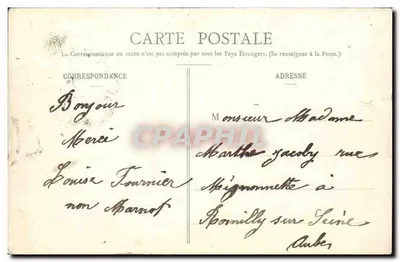 CARTE POSTALE
La Correspondance au recto n'est pas acceptée par tous les Pays Étrangers. (Se renseigner à la Poste.)
CORRESPONDANCE
ADRESSE
Bonjour
Merci
Louise Fournier
non Marnot
Monsieur Madame
Marthe Jacoby rue
Mignonnette à
Romilly sur Seine
Aube
CPARAMA